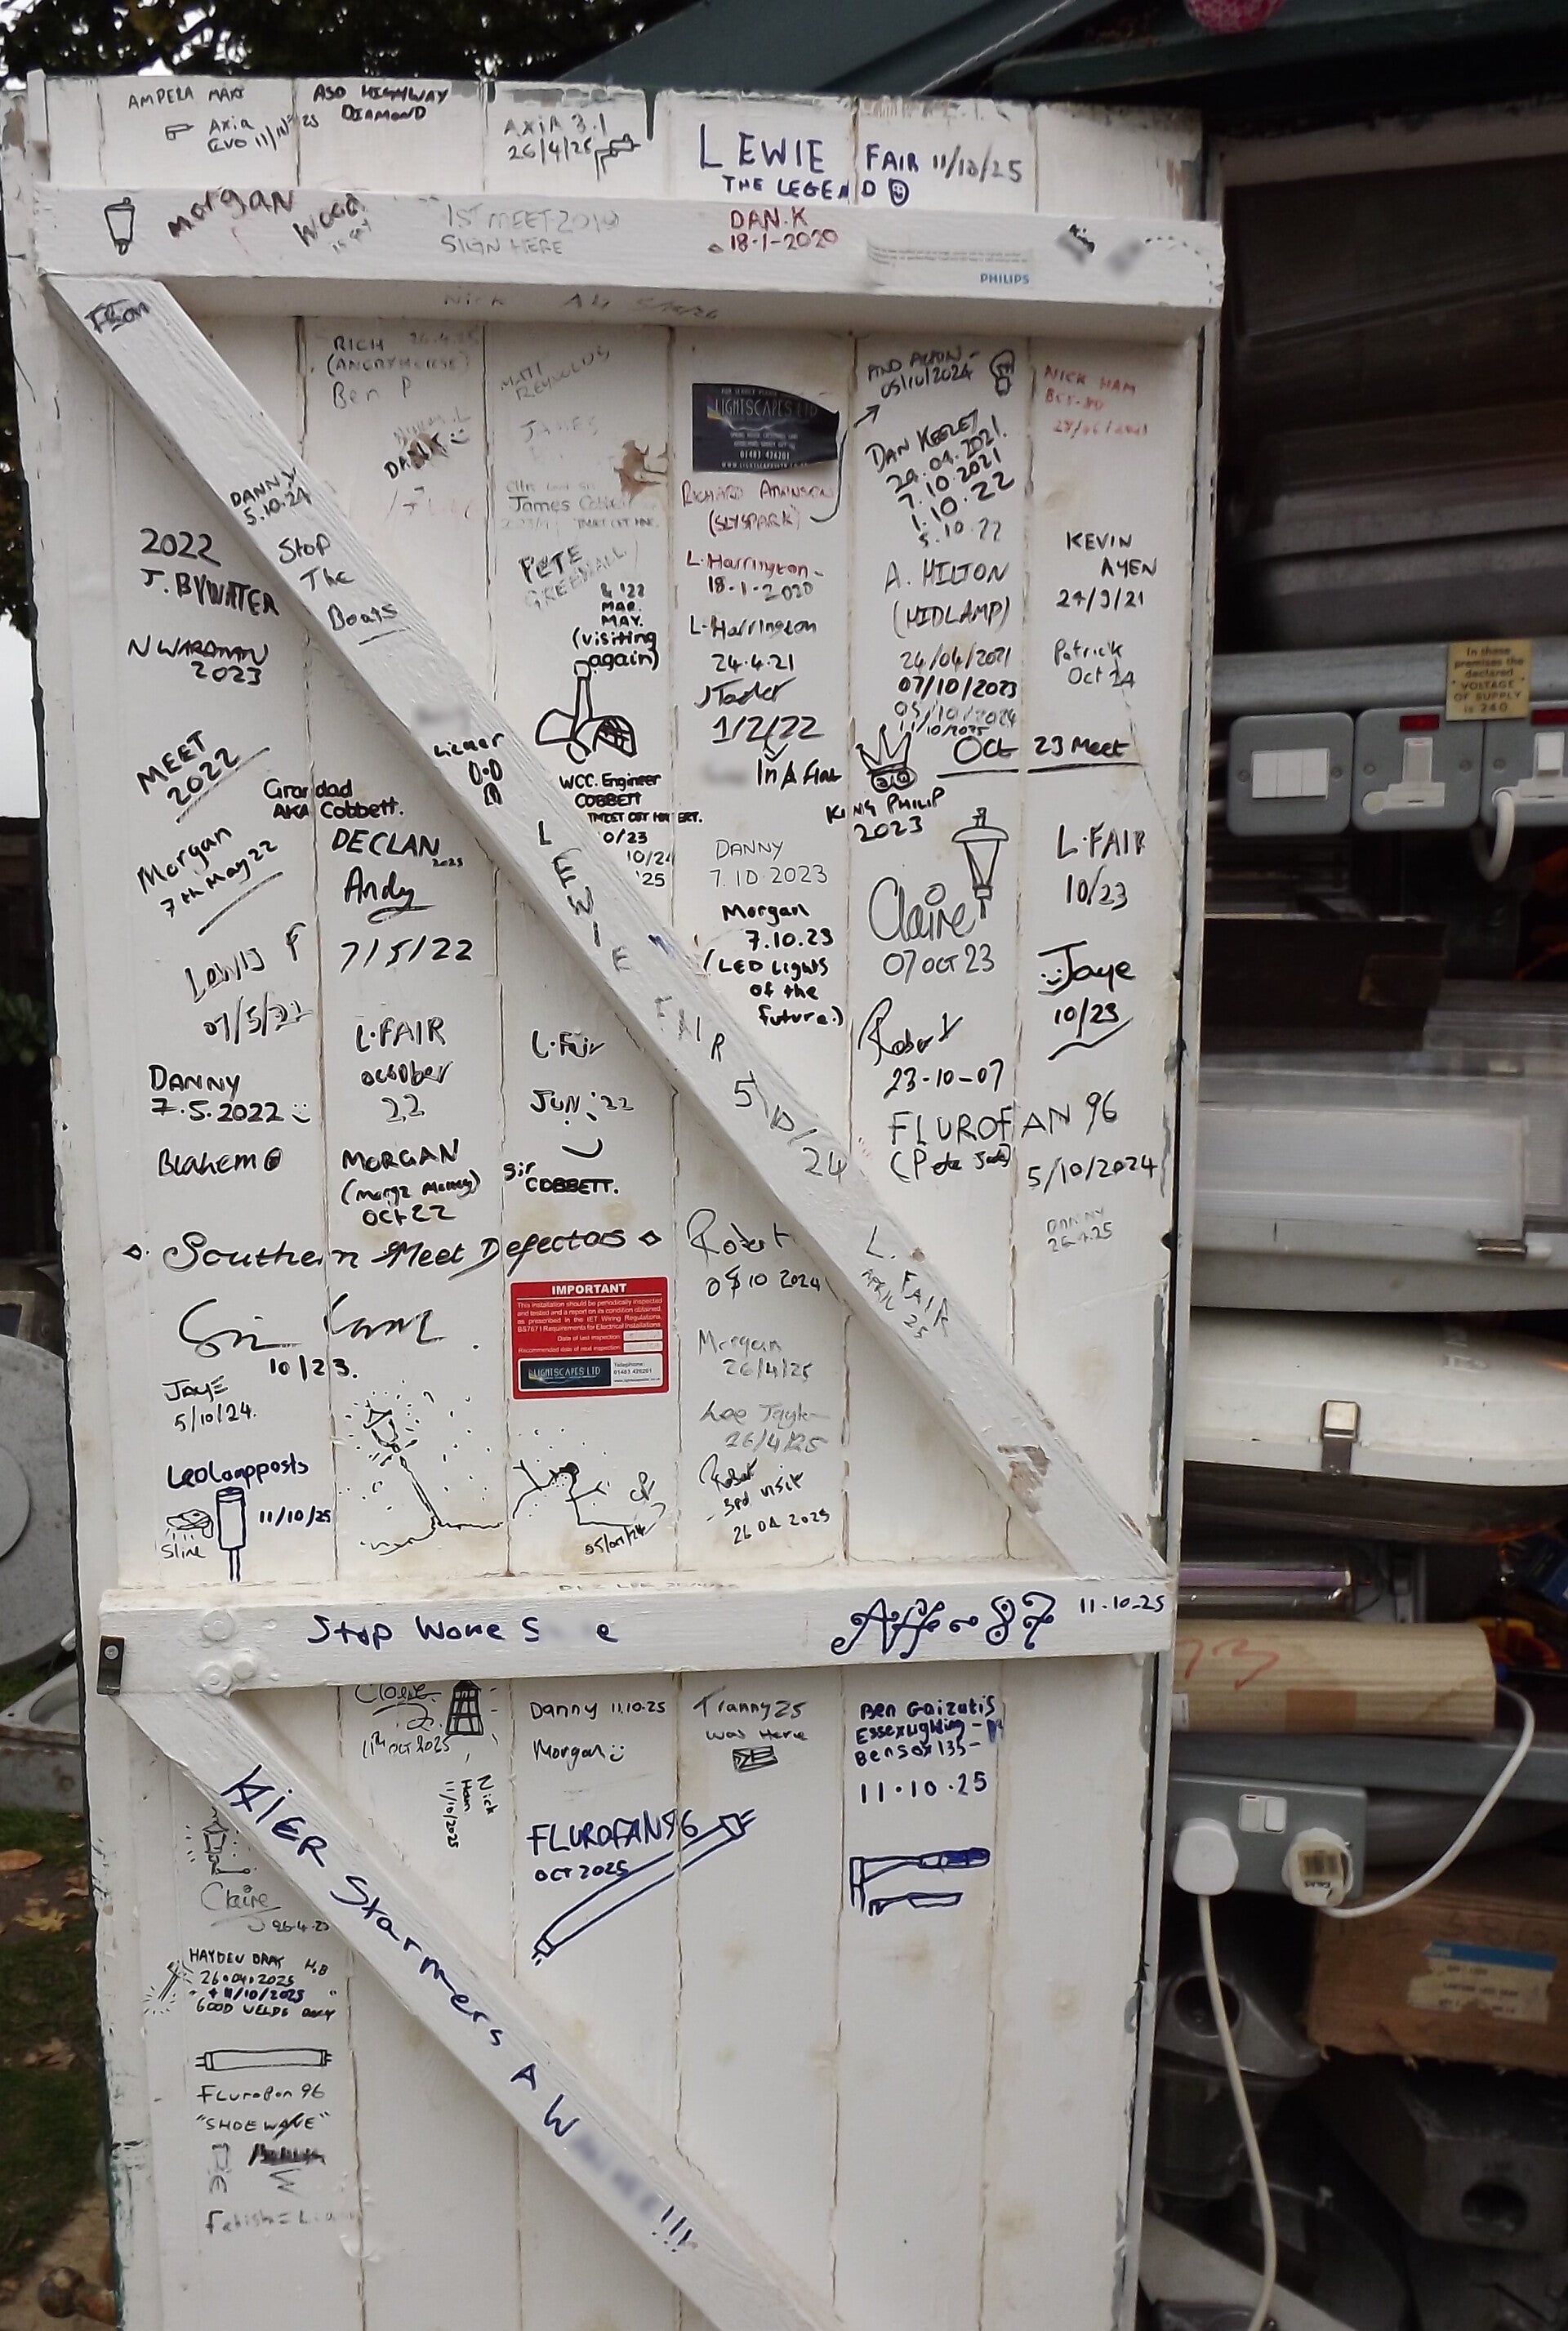 AMPERA MAXI
Axia
EVO 11/10/25
ASD HIGHWAY
DIAMOND
AXIA 3.1
26/4/25
LEWIE FAIR 11/10/25
THE LEGEND
MORGAN
WOOD
1ST MEET 2019
SIGN HERE
DAN.K
18-1-2020
PHILIPS
Nick
RICH 26.4.25
(ANGRYHORSE)
Ben P
MATT
REYNOLDS
JAMES
James
LIGHTSCAPES LTD
01483 426201
AND AGAIN -
05/10/2024
NICK HAM
DAN KEELEY
24.04.2021.
7.10.2021
1.10.22
5.10.22
RICHARD ATKINSON
(SLYSPARK)
DANNY
5.10.24
Stop
The
Boats
2022
J. BYWATER
N WARDMAN
2023
PETE
GREENALL
& '22
MAR.
MAY.
(visiting
again)
L. Harrington
18-1-2020
L. Harrington
24.4.21
1/2/22
A. HILTON
(MIDLAMP)
24/04/2021
07/10/2023
05/10/2024
11/10/2025
KEVIN
AYEN
24/9/21
Patrick
Oct 24
MEET
2022
WCC. Engineer
COBBETT
10/23
10/24
'25
In A Fiat
KING PHILIP
2023
OCT 23 Meet
Grandad
AKA Cobbett.
Morgan
7th May 22
DECLAN
2023
Andy
7/5/22
DANNY
7.10.2023
Morgan
7.10.23
(LED Lights
of the
future.)
Claire
07 OCT 23
L. FAIR
10/23
Jaye
10/23
Lewis F
07/5/22
L. FAIR
OCTOBER
22
L. Fair
JUN '22
LEWIE FAIR 5/10/24
Robert
23-10-07
DANNY
7.5.2022
Blakem
MORGAN
OCT 22
Sir
COBBETT.
FLUROFAN 96
5/10/2024
DANNY
26.4.25
Southern Meet Defectors
10/23.
IMPORTANT
This installation should be periodically inspected
and tested and a report on its condition obtained,
as prescribed in the IET Wiring Regulations
BS7671 Requirements for Electrical Installations.
Date of last inspection
Recommended date of next inspection
LIGHTSCAPES LTD
Telephone:
01483 426201
Robert
05 10 2024
L. FAIR
APRIL 25
Morgan
26/4/25
Lee Taylor
26/4/25
Robert
3rd visit
26 04 2025
JAYE
5/10/24.
Leolampposts
11/10/25
Sline
Stop Wone S e
Affro 87 11.10.25
Claire
11th OCT 2025
Nick
Ham
11/10/2025
Danny 11.10.25
Morgan
Tranny25
was Here
Ben Gaizutis
Essexlighting -
Bensox135 -
11.10.25
FLUROFAN96
OCT 2025
KIER Starmers A W !!!
Claire
26.4.25
HAYDEN BRAY H.B
26.04.2025
+ 11/10/2025
GOOD WELDS ONLY
Flurofan 96
"SHOEWAVE"
Fetish =
In these
premises the
declared
VOLTAGE
OF SUPPLY
is 240